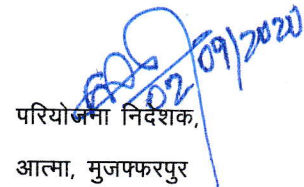 02/09/2020
परियोजना निदेशक,
आत्मा, मुजफ्फरपुर